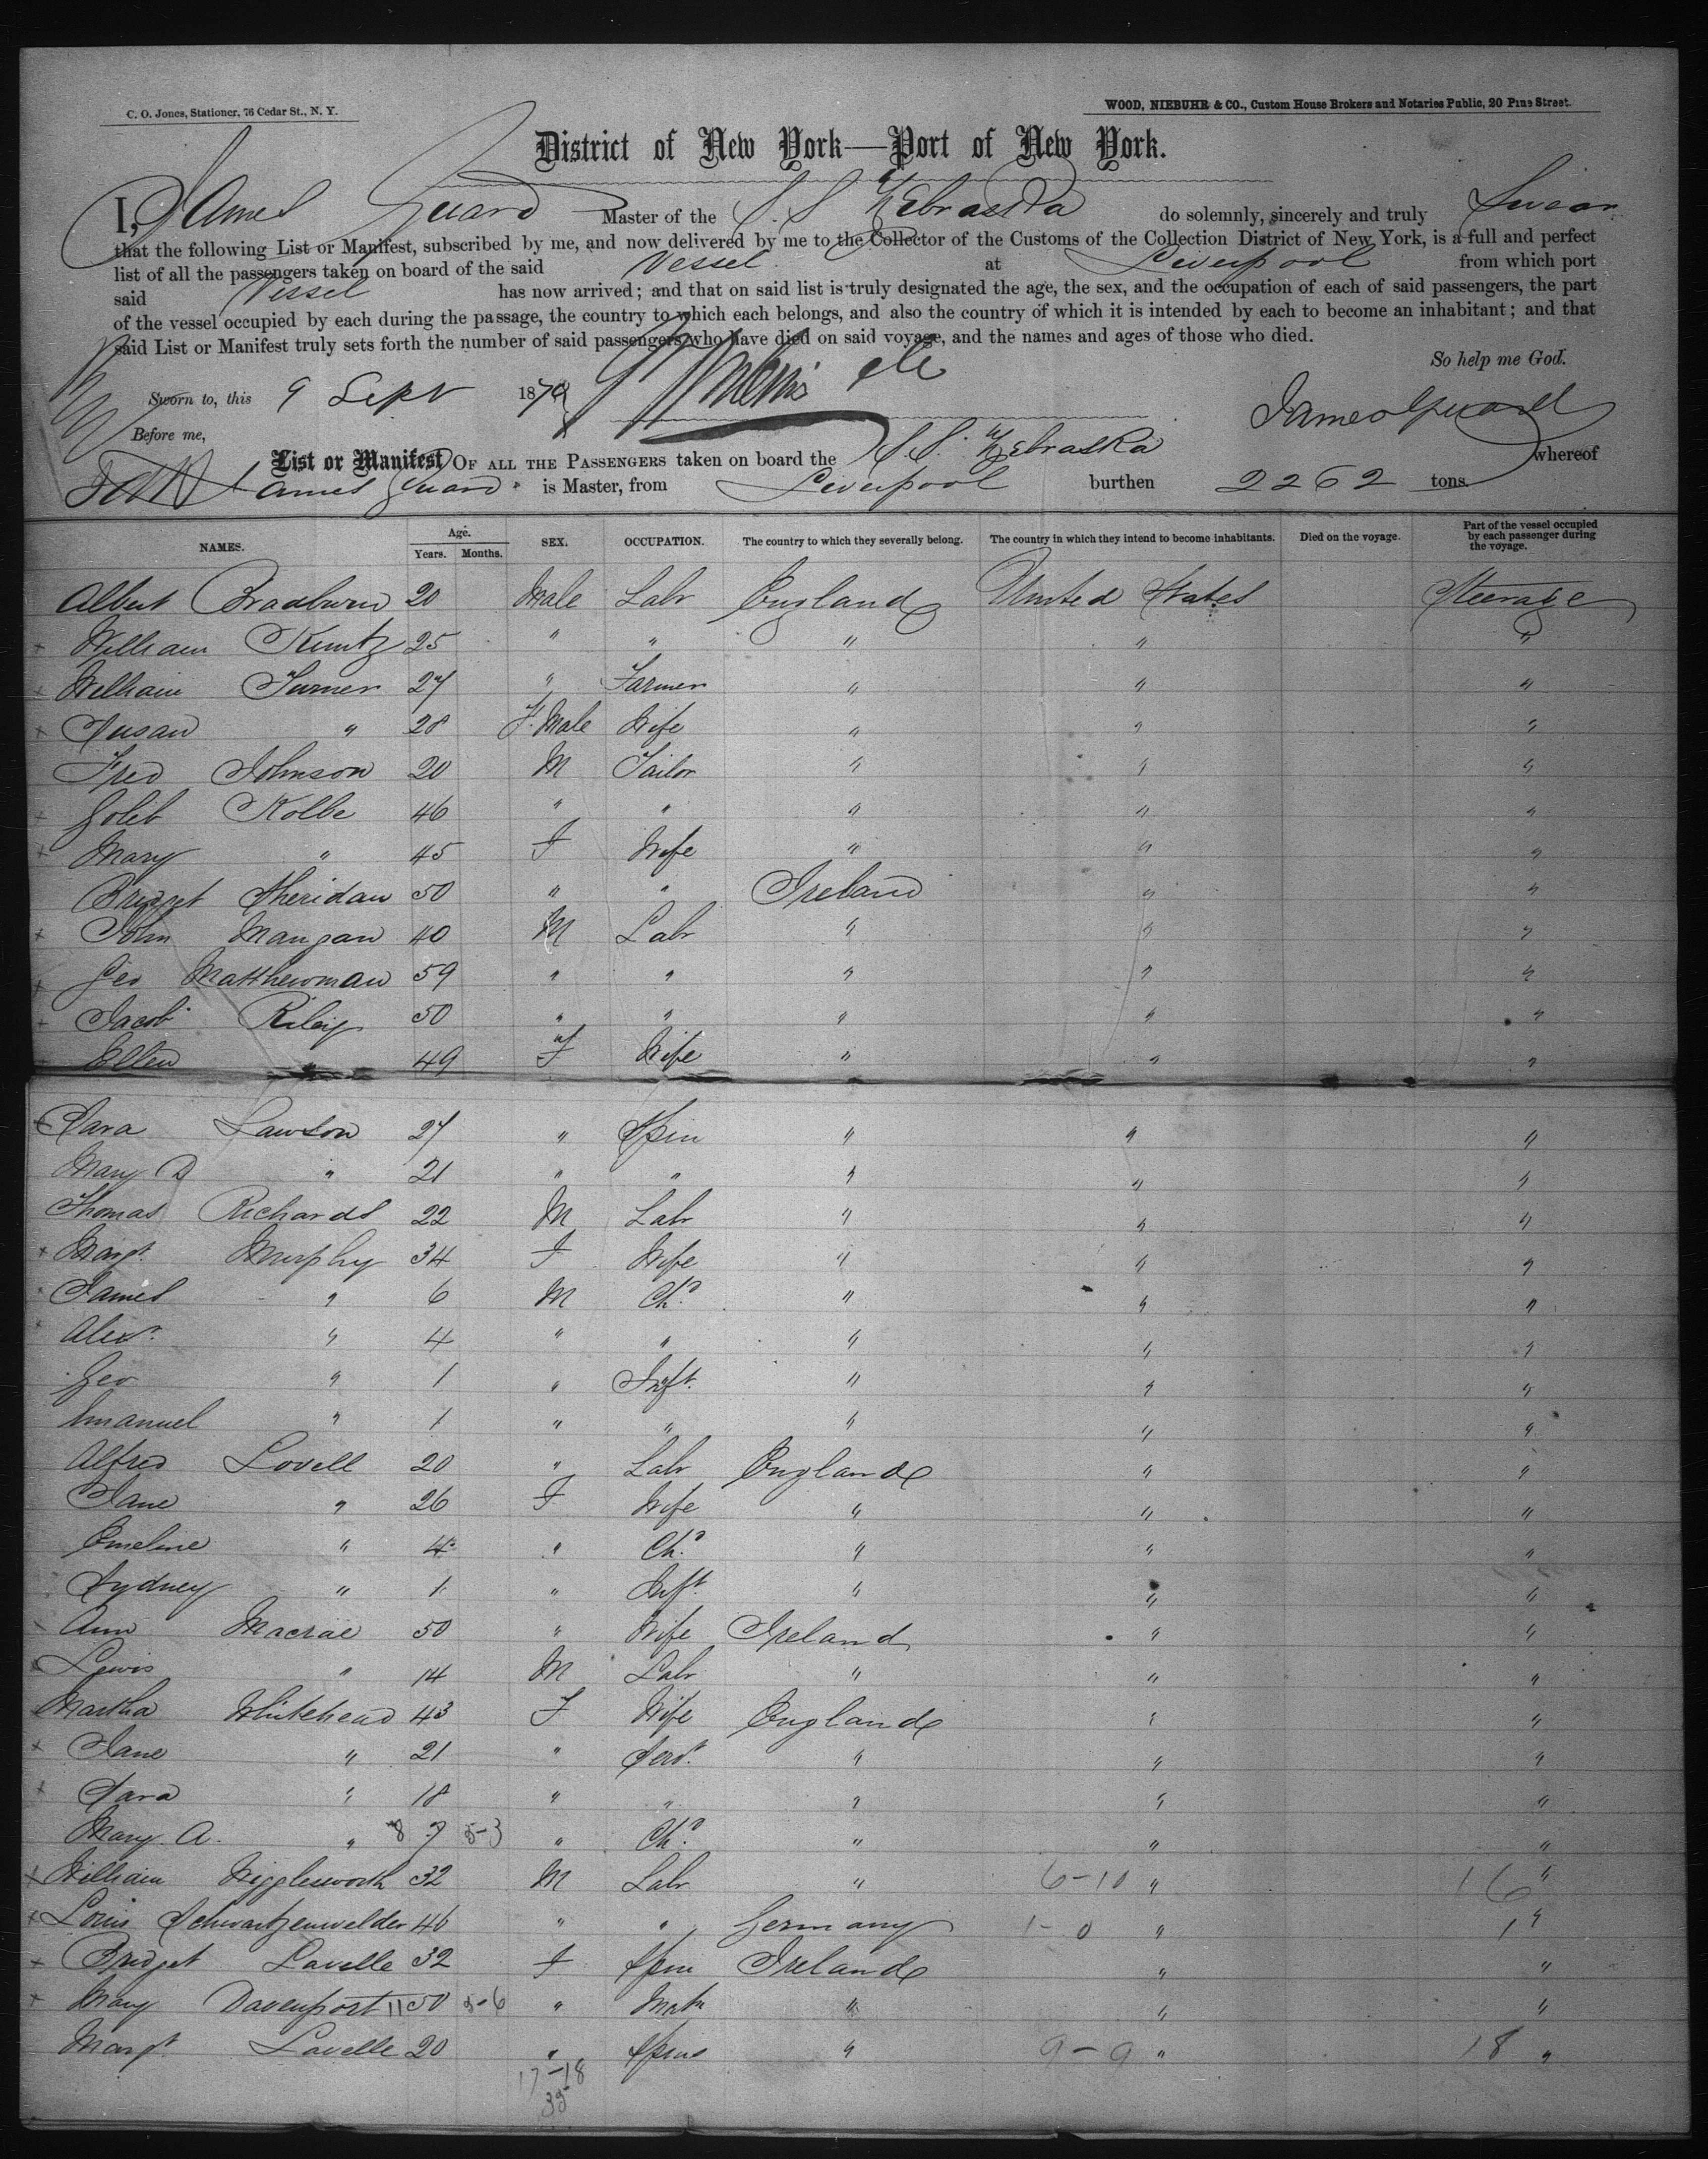 C. O. Jones, Stationer, 76 Cedar St., N. Y.
WOOD, NIEBUHR & CO., Custom House Brokers and Notaries Public, 20 Pine Street.
District of New York—Port of New York.
I, James Guard Master of the S. S. Nebraska do solemnly, sincerely and truly Swear
that the following List or Manifest, subscribed by me, and now delivered by me to the Collector of the Customs of the Collection District of New York, is a full and perfect
list of all the passengers taken on board of the said Vessel at Liverpool from which port
said Vessel has now arrived; and that on said list is truly designated the age, the sex, and the occupation of each of said passengers, the part
of the vessel occupied by each during the passage, the country to which each belongs, and also the country of which it is intended by each to become an inhabitant; and that
said List or Manifest truly sets forth the number of said passengers who have died on said voyage, and the names and ages of those who died.
So help me God.
Sworn to, this 9 Sept 1879
James Guard
Before me,
List or Manifest OF ALL THE PASSENGERS taken on board the S. S. Nebraska whereof
James Guard is Master, from Liverpool burthen 2262 tons.
NAMES. Age. Years. Months. SEX. OCCUPATION. The country to which they severally belong. The country in which they intend to become inhabitants. Died on the voyage. Part of the vessel occupied by each passenger during the voyage.
Albert Bradburn 20 Male Labr England United States Steerage
William Kuntz 25 " " " " "
William Turner 27 " Farmer " " "
Susan " 28 F. Male Wife " " "
Fred Johnson 20 M Tailor " " "
Golib Kolbe 46 " " " " "
Mary " 45 F Wife " " "
Bridget Sheridan 50 " " Ireland " "
John Mangan 40 M Labr " " "
Geo Matthewman 59 " " " " "
Jacob Riley 50 " " " " "
Ellen " 49 F Wife " " "
Sara Lawson 27 " Spin " " "
Mary D " 21 " " " " "
Thomas Richards 22 M Labr " " "
Margt. Murphy 34 F Wife " " "
James " 6 M Chd. " " "
Alexr. " 4 " " " " "
Geo " 1 " Inft. " " "
Emanuel " 1 " " " " "
Alfred Lovell 20 " Labr England " "
Jane " 26 F Wife " " "
Emeline " 4 " Chd. " " "
Sydney " 1 " Inft. " " "
Ann Macrae 50 " Wife Ireland " "
Lewis " 14 M Labr " " "
Martha Whitehead 43 F Wife England " "
Jane " 21 " Servt. " " "
Sara " 18 " " " " "
Mary A. " 8 7 5-3 " Chd. " " "
William Wigglesworth 32 M Labr " 6-10 " 16 "
Louis Schwartzenwelder 46 " " Germany 1-0 " 1 "
Bridget Lavelle 32 F Spin Ireland " "
Mary Davenport 11 50 5-6 " Matn " " "
Margt. Lavelle 20 " Spins " 9-9 " 18 "
17-18
35